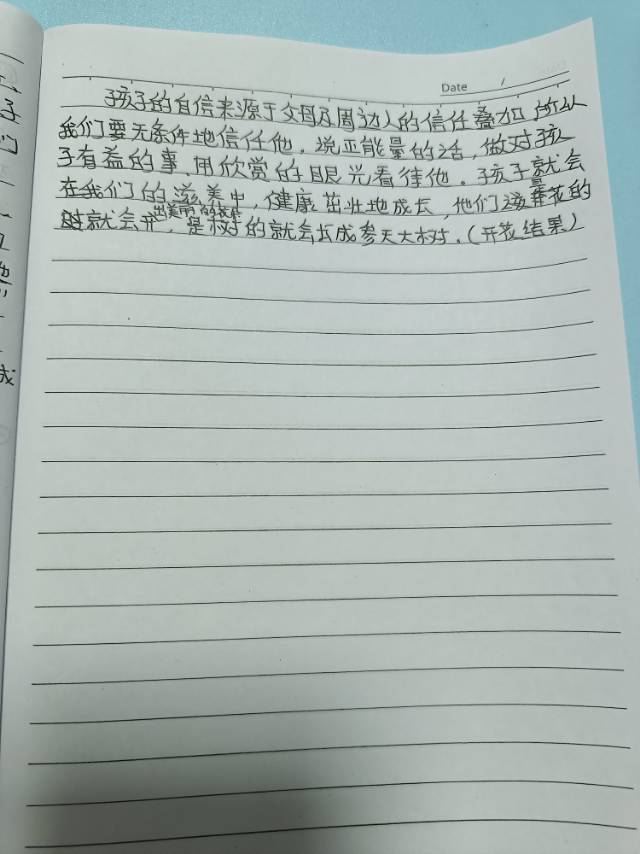 Date /
孩子的自信来源于父母及周边人的信任叠加,所以
我们要无条件地信任他,说正能量的话,做对孩
子有益的事,用欣赏的眼光看待他。孩子就会
在我们的滋美中,健康茁壮地成长,他们这是花的
出美丽的花朵
就会开,是树的就会长成参天大树。(开花结果)
子
们
成